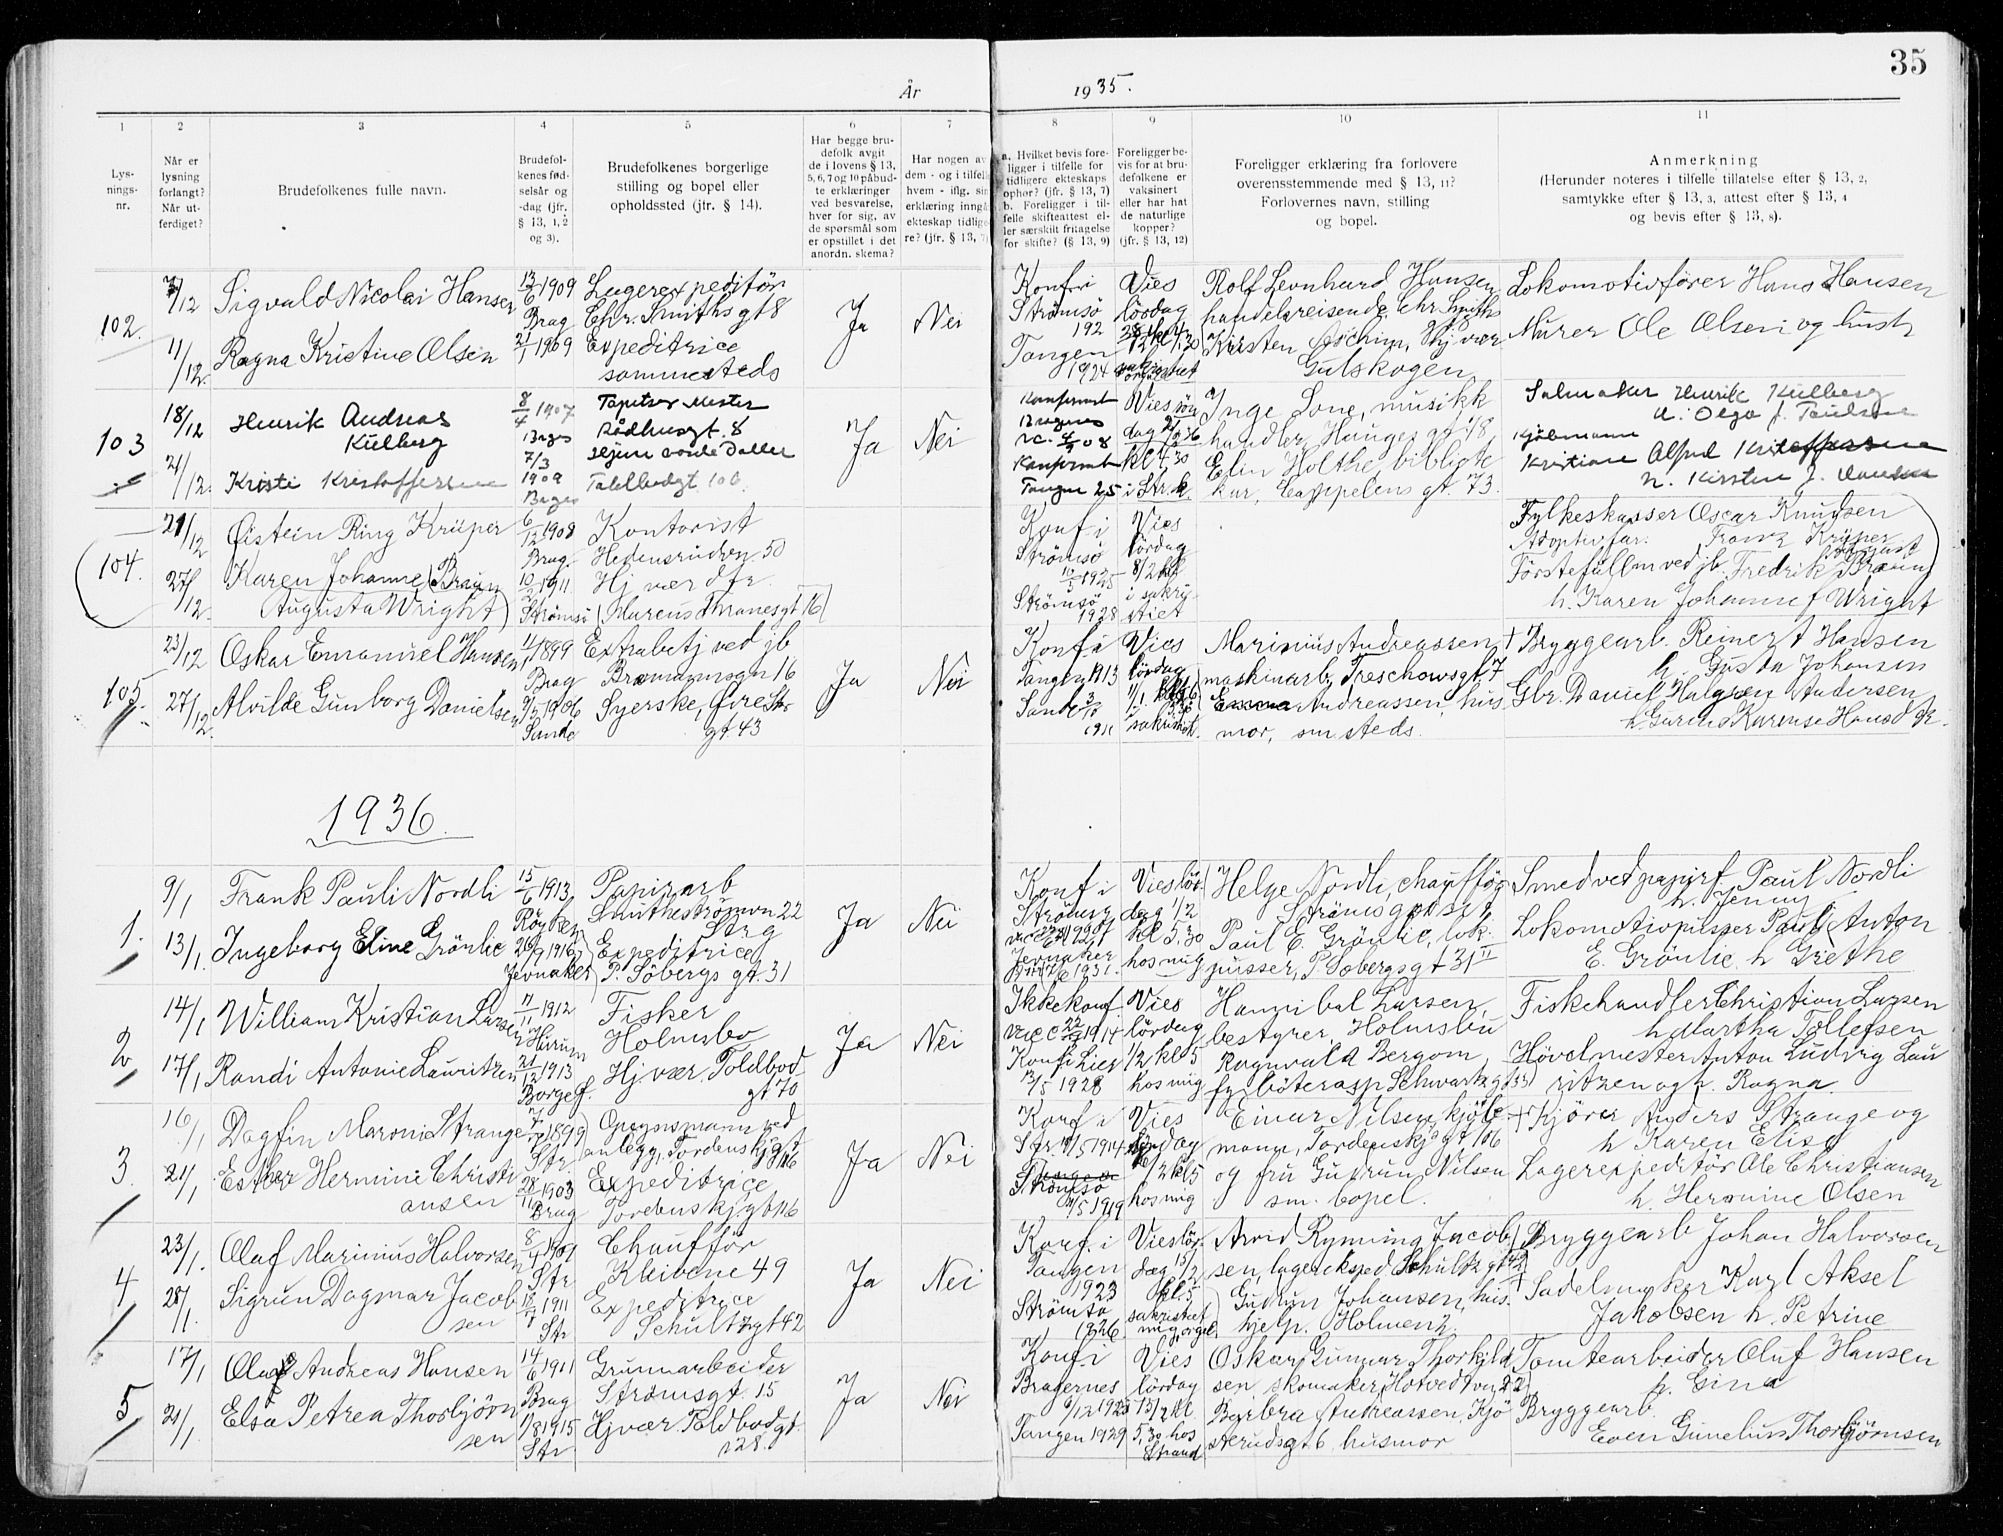 35
År 1935.
1 2 3 4 5 6 7 8 9 10 11
Lys-
nings-
nr.
Når er
lysning
forlangt?
Når ut-
ferdiget?
Brudefolkenes fulle navn.
Brudefol-
kenes fød-
selsår og
-dag (jfr.
§ 13, 1, 2
og 3).
Brudefolkenes borgerlige
stilling og bopel eller
opholdssted (jtr. § 14).
Har begge bru-
defolk avgit
de i lovens § 13,
5, 6, 7 og 10 påbud-
te erklæringer
ved besvarelse,
hver for sig, av
de spørsmål som
er opstillet i det
anordn. skema?
Har nogen av
dem - og i tilfelle
hvem - iflg. sin
erklæring inngå
ekteskap tidlige-
re? (jfr. § 13, 7)
a. Hvilket bevis fore-
ligger i tilfelle for
tidligere ekteskaps
ophør? (jfr. § 13, 7)
b. Foreligger i til-
felle skifteattest el-
ler særskilt fritagelse
for skifte? (§ 13, 9)
Foreligger be-
vis for at bru-
defolkene er
vaksinert
eller har hat
de naturlige
kopper?
(jfr. § 13, 12)
Foreligger erklæring fra forlovere
overensstemmende med § 13, 11?
Forlovernes navn, stilling
og bopel.
Anmerkning
(Herunder noteres i tilfelle tillatelse efter § 13, 2,
samtykke efter § 13, 3, attest efter § 13, 4
og bevis efter § 13, 8).
102.
7/12
11/12.
Sigvald Nicolai Hansen
Ragna Kristine Olsen
13/6 1909
Brag
21/1 1909
Lagerexpeditör
Chr. Smiths gt 8
Expeditrice
sammesteds
Ja
Nei
Konf i
Strömsö
192
Tangen
1924
Vies
lördag
Rolf Leonhard Hansen
handelsreisende, Chr. Smiths
gt 8
Kirsten Aschim, Hj vær
Gulskogen
Lokomotivfører Hans Hansen
Murer Ole Olsen og hust
103
18/12
21/12.
Henrik Andreas
Kulberg
Kristi Kristoffersen
8/4 1907
Brges
7/3
1909
Brges
Tapetser Mester
Rådhusgt. 8
Hjem. Datter
Toldbodgt. 100
Ja
Nei
Konfirmert
Bragnes
Konfirmert
Tangen 25
Vies søn
dag
kl 4.30
i Str. k.
Inge Lone, musikk
handler, Hauges gt 18
Elin Holthe, bibliote
kar, Cappelens gt. 73.
Salmaker Henrik Kulberg
u. Olga f. Paulsen
Kjöbmann
Kristian Alfred Kristoffersen
h. Kirsten f.
104.
21/12
27/12
Øistein Ring Krüper
Karen Johanne (Braun
Augusta Wright)
6/12 1908
Brag.
10/2 1911
Strömsö
Kontorist
Hedensrudvn 50
Hj vær d fr.
(Marcus Thranesgt 16)
Konf i
Strömsö
Strömsö
1928
Vies
lördag
8/2 kl
i sakri
stiet
Fylkeskasser Oscar Knudsen
Adoptivfar: Franz Krüper
Förstefullm ved jb. Fredrik August Braun
h. Karen Johanne f Wright
105.
23/12
27/12.
Oskar Emanuel Hansen
Alvilde Gunborg Danielsen
11/1 1899
Brag
9/5 1906
Sande
Extrabetj ved jb
Brammensgn 16
Syerske, Øvre Str
gt. 43
Ja
Nei
Konf i
Tangen 1913
Sande
1911
Vies
lördag
11/1
sakristiet.
Marinius Andreassen
maskinarb, Treschowsgt 7
Emma Andreassen, hus
mor, sm steds.
† Bryggearb. Reinert Hansen
h. Gusta Johansen
Gbr. Daniel Halgren Andersen
h. Gurine Karense Hansd tr.
1936
1.
9/1
13/1.
Frank Pauli Nordli
Ingeborg Eline Grönlie
15/6 1913
Röyken
26/9 1916
Jevnaker
Papirarb
Smithestrømvn 22
Strg
Expeditrice
P. Söbergs gt. 31
Ja
Nei
Konf i
Strömsg
Jevnaker
1931.
Vies lör
dag 1/2
kl 5,30
hos mig
Helge Nordli, chaufför
Strömsgodset
Paul E. Grönlie, lok.
pusser, P. Sobergsgt 31 II
Smed ved papirf. Paul Nordli
h. Jenny
Lokomotivpusser Paul Anton
E. Grönlie h Grethe
2
14/1
17/1
William Kristian Larsen
Randi Antonie Lauritzen
11/11 1912
Hurum
21/12 1913
Borge f.
Fisker
Holmsbo
Hj vær, Toldbod
gt 70
Ja
Nei
Ikke konf.
Vacc 22/ 1914
Konf i Lier
13/5 1928
Vies
lördag
1/2 kl 5
hos mig
Hannibal Larsen,
bestyrer, Holmsbu
Ragnvald Bergom,
fyrböterasp Schwartzgt 33)
Fiskehandler Christian Larsen
h Martha Tollefsen
Hövelmester Anton Ludvig Lau
ritzen og h. Ragna.
3.
16/1
21/1
Dagfin Maroni Strange
Esther Hermine Christi
ansen
1899
Str.
28/11 1903
Brag
Opsynsmann ved
anlegg, Tordenskj gt
116
Expeditrice
Tordenskj gt 116
Ja
Nei
Konf i
Str. 11/5 1914
Strömsö
11/5 1919
Vies
lördag
/2 kl 5
hos mig
Einar Nilsen, kjöb-
mann, Tordenskj gt. 106
og fru Gudrun Nilsen
sm. bopel.
† Kjörer Anders Strange og
h Karen Elise
Lagerexpeditör Ole Christiansen
h. Hermine Olsen
4
23/1.
28/1.
Olaf Marinius Halvorsen
Sigrun Dagmar Jacob
sen
8/4 1907
Str
1911
Str
Chaufför
Kleivene 49
Expeditrice
Schultzgt 42
Ja
Nei
Konf. i
Tangen
1923
Strömsö
1926.
Vies lör
dag 15/2
kl 5
sakristiet
m orgel.
Arvid Rynning Jacob
sen, lagereksped Schultz gt 42
Gudrun Johansen, hus-
hjelp. Holmen 2.
Bryggearb Johan Halvorsen
† Sadelmaker Karl Aksel
Jakobsen h. Petrine
5
17/1
21/1.
Olaf Andreas Hansen
Elsa Petrea Thorbjörn
sen
14/6 1911
Brag
1/8 1915
Str
Grunnarbeider
Strömsgt. 15
Hjvær Toldbodgt.
128.
Ja
Nei
Konf i
Bragernes
6/12 1925
Tangen 1929
Vies
lördag
kl.
5,30 hos
Strand
Oskar Gunnar Thorkild
sen skomaker, Hotvedtvei 22)
Barbra Andreassen, Kjö
sterudsgt 6, husmor
Tomtearbeider Oluf Hansen
h. Gina
Bryggearb.
Even Gunelius Thorbjörnsen